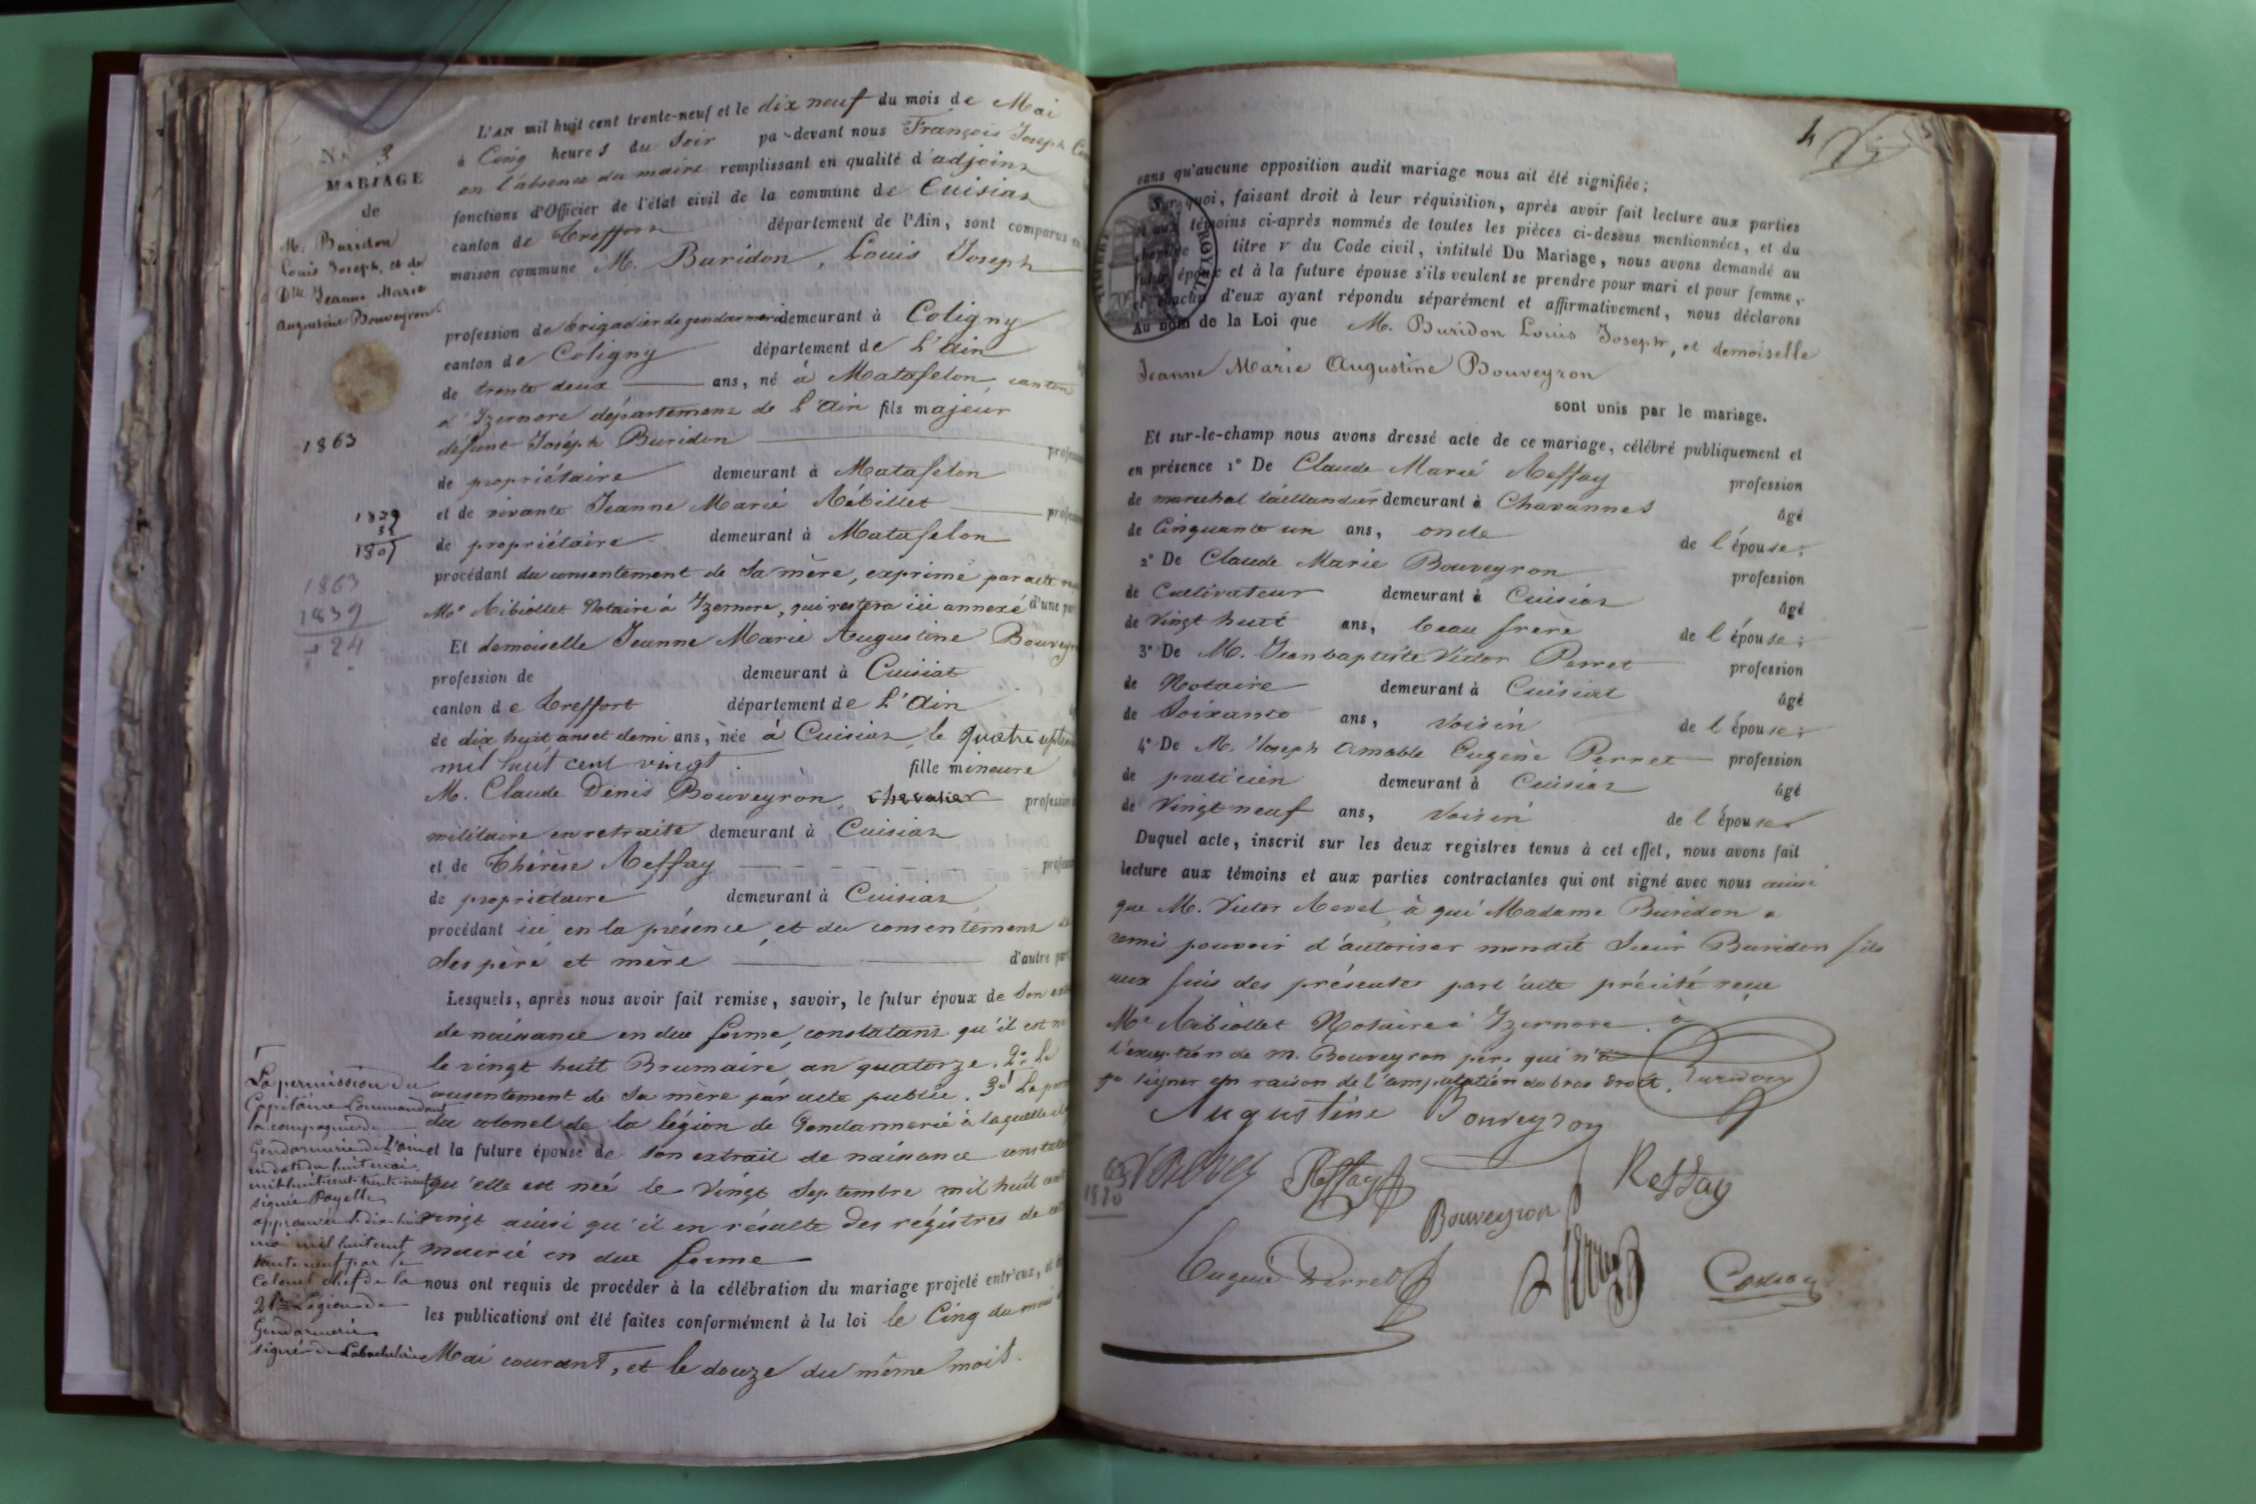 N° 3
MARIAGE
de
M. Buridon
Louis Joseph, et de
Dlle Jeanne Marie
Augustine Bouveyron
1863
1839
32
1807
1863
1839
24
L'AN mil huit cent trente-neuf et le dix neuf du mois de Mai
à Cinq heures du Soir par-devant nous François Joseph
en l'absence du maire remplissant en qualité d'adjoint
fonctions d'Officier de l'état civil de la commune de Cuisiat
canton de Treffort département de l'Ain, sont comparus en
maison commune M. Buridon, Louis Joseph
profession de brigadier de gendarmerie demeurant à Coligny
canton de Coligny département de L'Ain
de trente deux ans, né à Matafelon, canton
d'Izernore département de L'Ain fils majeur
défunt Joseph Buridon
de propriétaire demeurant à Matafelon
et de vivante Jeanne Marie Rébillet
de propriétaire demeurant à Matafelon
procédant du consentement de Sa mère, exprimé par acte
Me Ribiollet Notaire à Izernore, qui restera ici annexé d'une part
Et demoiselle Jeanne Marie Augustine Bouveyron
profession de demeurant à Cuisiat
canton de Treffort département de L'Ain
de dix huit ans et demi ans, née à Cuisiat, le quatre septembre
mil huit cent vingt fille mineure
M. Claude Denis Bouveyron, chevalier profession
militaire en retraite demeurant à Cuisiat
et de Thérèse Reffay
de propriétaire demeurant à Cuisiat
procédant ici en la présence et du consentement de
Ses père et mère d'autre part
Lesquels, après nous avoir fait remise, savoir, le futur époux de Son
de naissance en due forme, constatant qu'il est né
le vingt huit Brumaire an quatorze. 2° Le
consentement de Sa mère par acte public. 3° La
du colonel de la légion de Gendarmerie à laquelle il
et la future épouse de son extrait de naissance
qu'elle est née le Vingt Septembre mil huit cent
vingt ainsi qu'il en résulte des régistres de
mairie en due forme
nous ont requis de procéder à la célébration du mariage projeté entr'eux,
les publications ont été faites conformément à la loi le Cinq du mois
Mai courant, et le douze du même mois.
La permission du
Capitaine Commandant
la compagnie de
Gendarmerie de L'ain
en date du huit mai
mil huit cent trente neuf
signée Payelle
approuvée le dix huit
mai mil huit cent
trente neuf par le
Colonel chef de la
21e Légion de
Gendarmerie
signé
4
sans qu'aucune opposition audit mariage nous ait été signifiée;
Sur quoi, faisant droit à leur réquisition, après avoir fait lecture aux parties
et aux témoins ci-après nommés de toutes les pièces ci-dessus mentionnées, et du
chapitre titre v du Code civil, intitulé Du Mariage, nous avons demandé au
futur époux et à la future épouse s'ils veulent se prendre pour mari et pour femme,
et chacun d'eux ayant répondu séparément et affirmativement, nous déclarons
Au nom de la Loi que M. Buridon Louis Joseph, et demoiselle
Jeanne Marie Augustine Bouveyron
sont unis par le mariage.
Et sur-le-champ nous avons dressé acte de ce mariage, célébré publiquement et
en présence 1° De Claude Marie Reffay profession
de maréchal taillandier demeurant à Chavannes âgé
de Cinquante un ans, oncle de l'épouse;
2° De Claude Marie Bouveyron profession
de Cultivateur demeurant à Cuisiat âgé
de Vingt huit ans, beau frère de l'épouse;
3° De M. Jean baptiste Victor Perret profession
de Notaire demeurant à Cuisiat âgé
de Soixante ans, voisin de l'épouse;
4° De M. Joseph Amable Eugène Perret profession
de praticien demeurant à Cuisiat âgé
de Vingt neuf ans, voisin de l'épouse
Duquel acte, inscrit sur les deux registres tenus à cet effet, nous avons fait
lecture aux témoins et aux parties contractantes qui ont signé avec nous ainsi
que M. Victor à qui Madame Buridon a
remis pouvoir d'autoriser mondit Sieur Buridon fils
aux fins des présentes par l'acte précité reçu
Me Ribiollet Notaire à Izernore. à
l'exception de M. Bouveyron père qui n'a
pu signer en raison de l'amputation du bras droit.
Buridon
Augustine Bouveyron
Reffay
Reffay
Bouveyron
1820
Eugène Perret